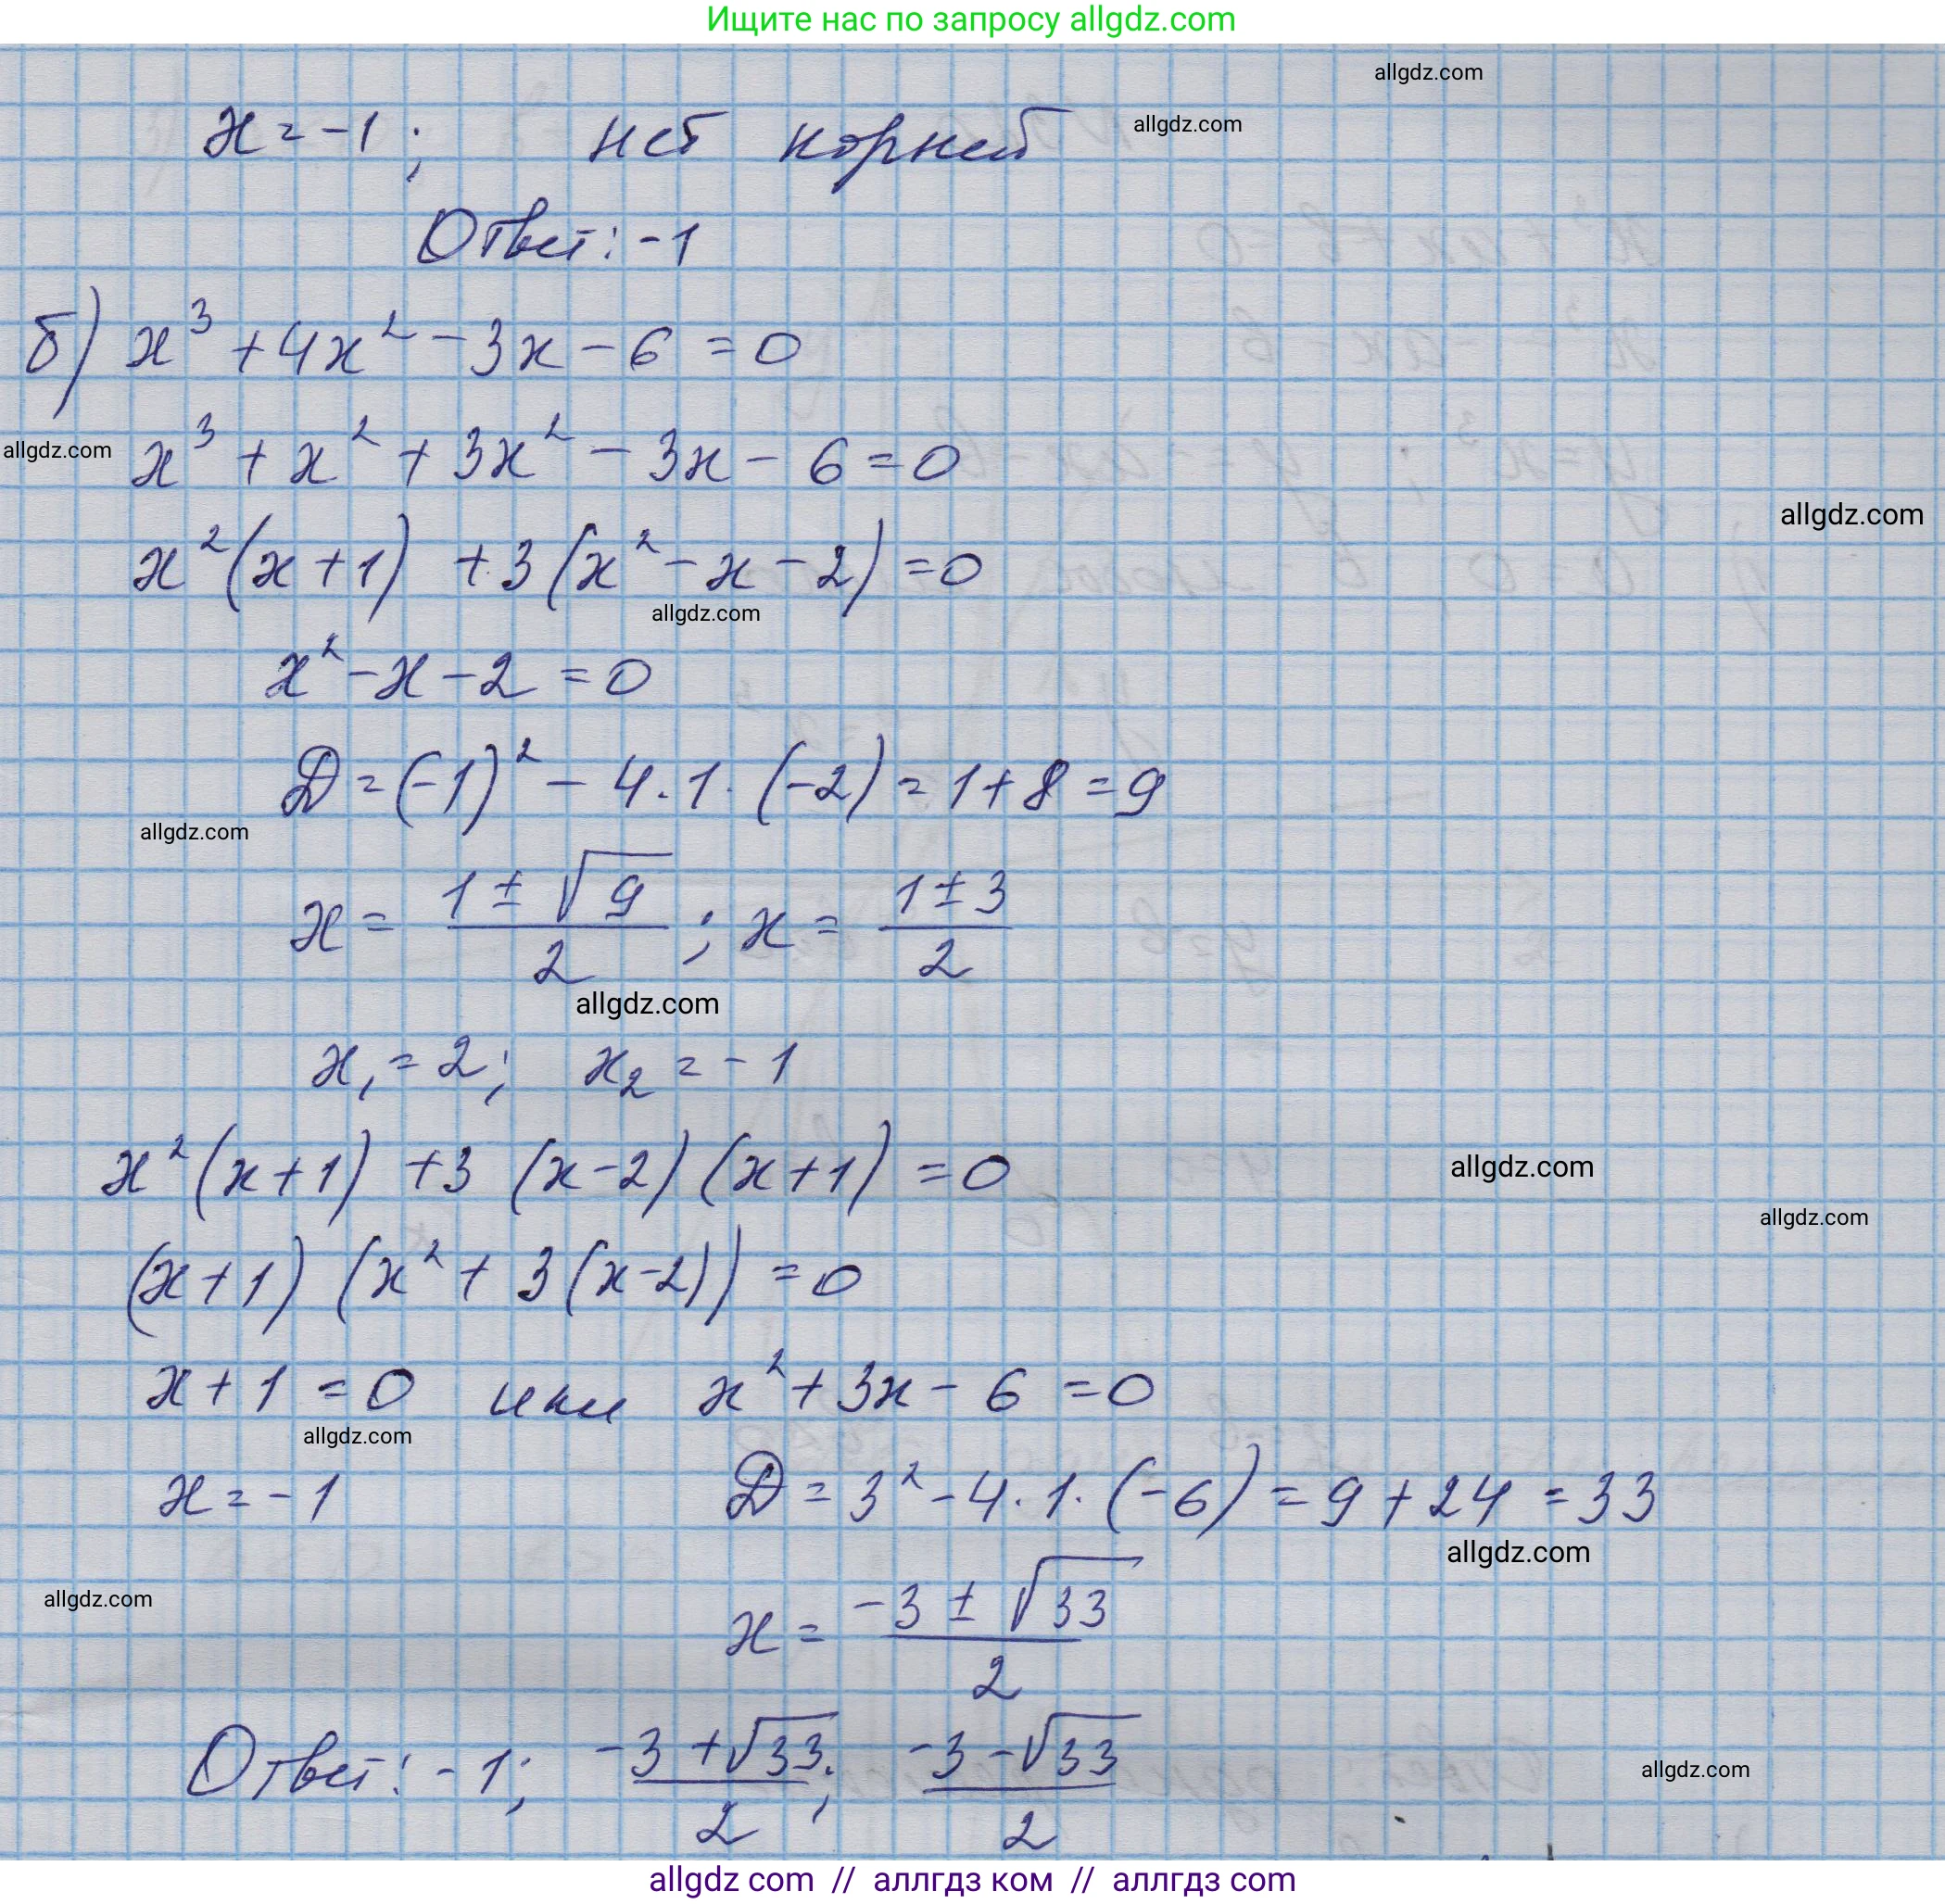 Ищите нас по запросу allgdz.com
allgdz.com
x = -1 ; нет корней allgdz.com
Ответ: -1
б) x³ + 4x² - 3x - 6 = 0
allgdz.com x³ + x² + 3x² - 3x - 6 = 0
allgdz.com
x²(x + 1) + 3(x² - x - 2) = 0
allgdz.com
x² - x - 2 = 0
D = (-1)² - 4 · 1 · (-2) = 1 + 8 = 9
allgdz.com
x = (1 ± √9)/2 ; x = (1 ± 3)/2
allgdz.com
x₁ = 2; x₂ = -1
x²(x + 1) + 3 (x - 2)(x + 1) = 0 allgdz.com
allgdz.com
(x + 1) (x² + 3(x - 2)) = 0
x + 1 = 0 или x² + 3x - 6 = 0
allgdz.com
x = -1 D = 3² - 4 · 1 · (-6) = 9 + 24 = 33
allgdz.com
allgdz.com
x = (-3 ± √33)/2
Ответ: -1; (-3 + √33)/2; (-3 - √33)/2
allgdz.com
allgdz com // аллгдз ком // аллгдз com